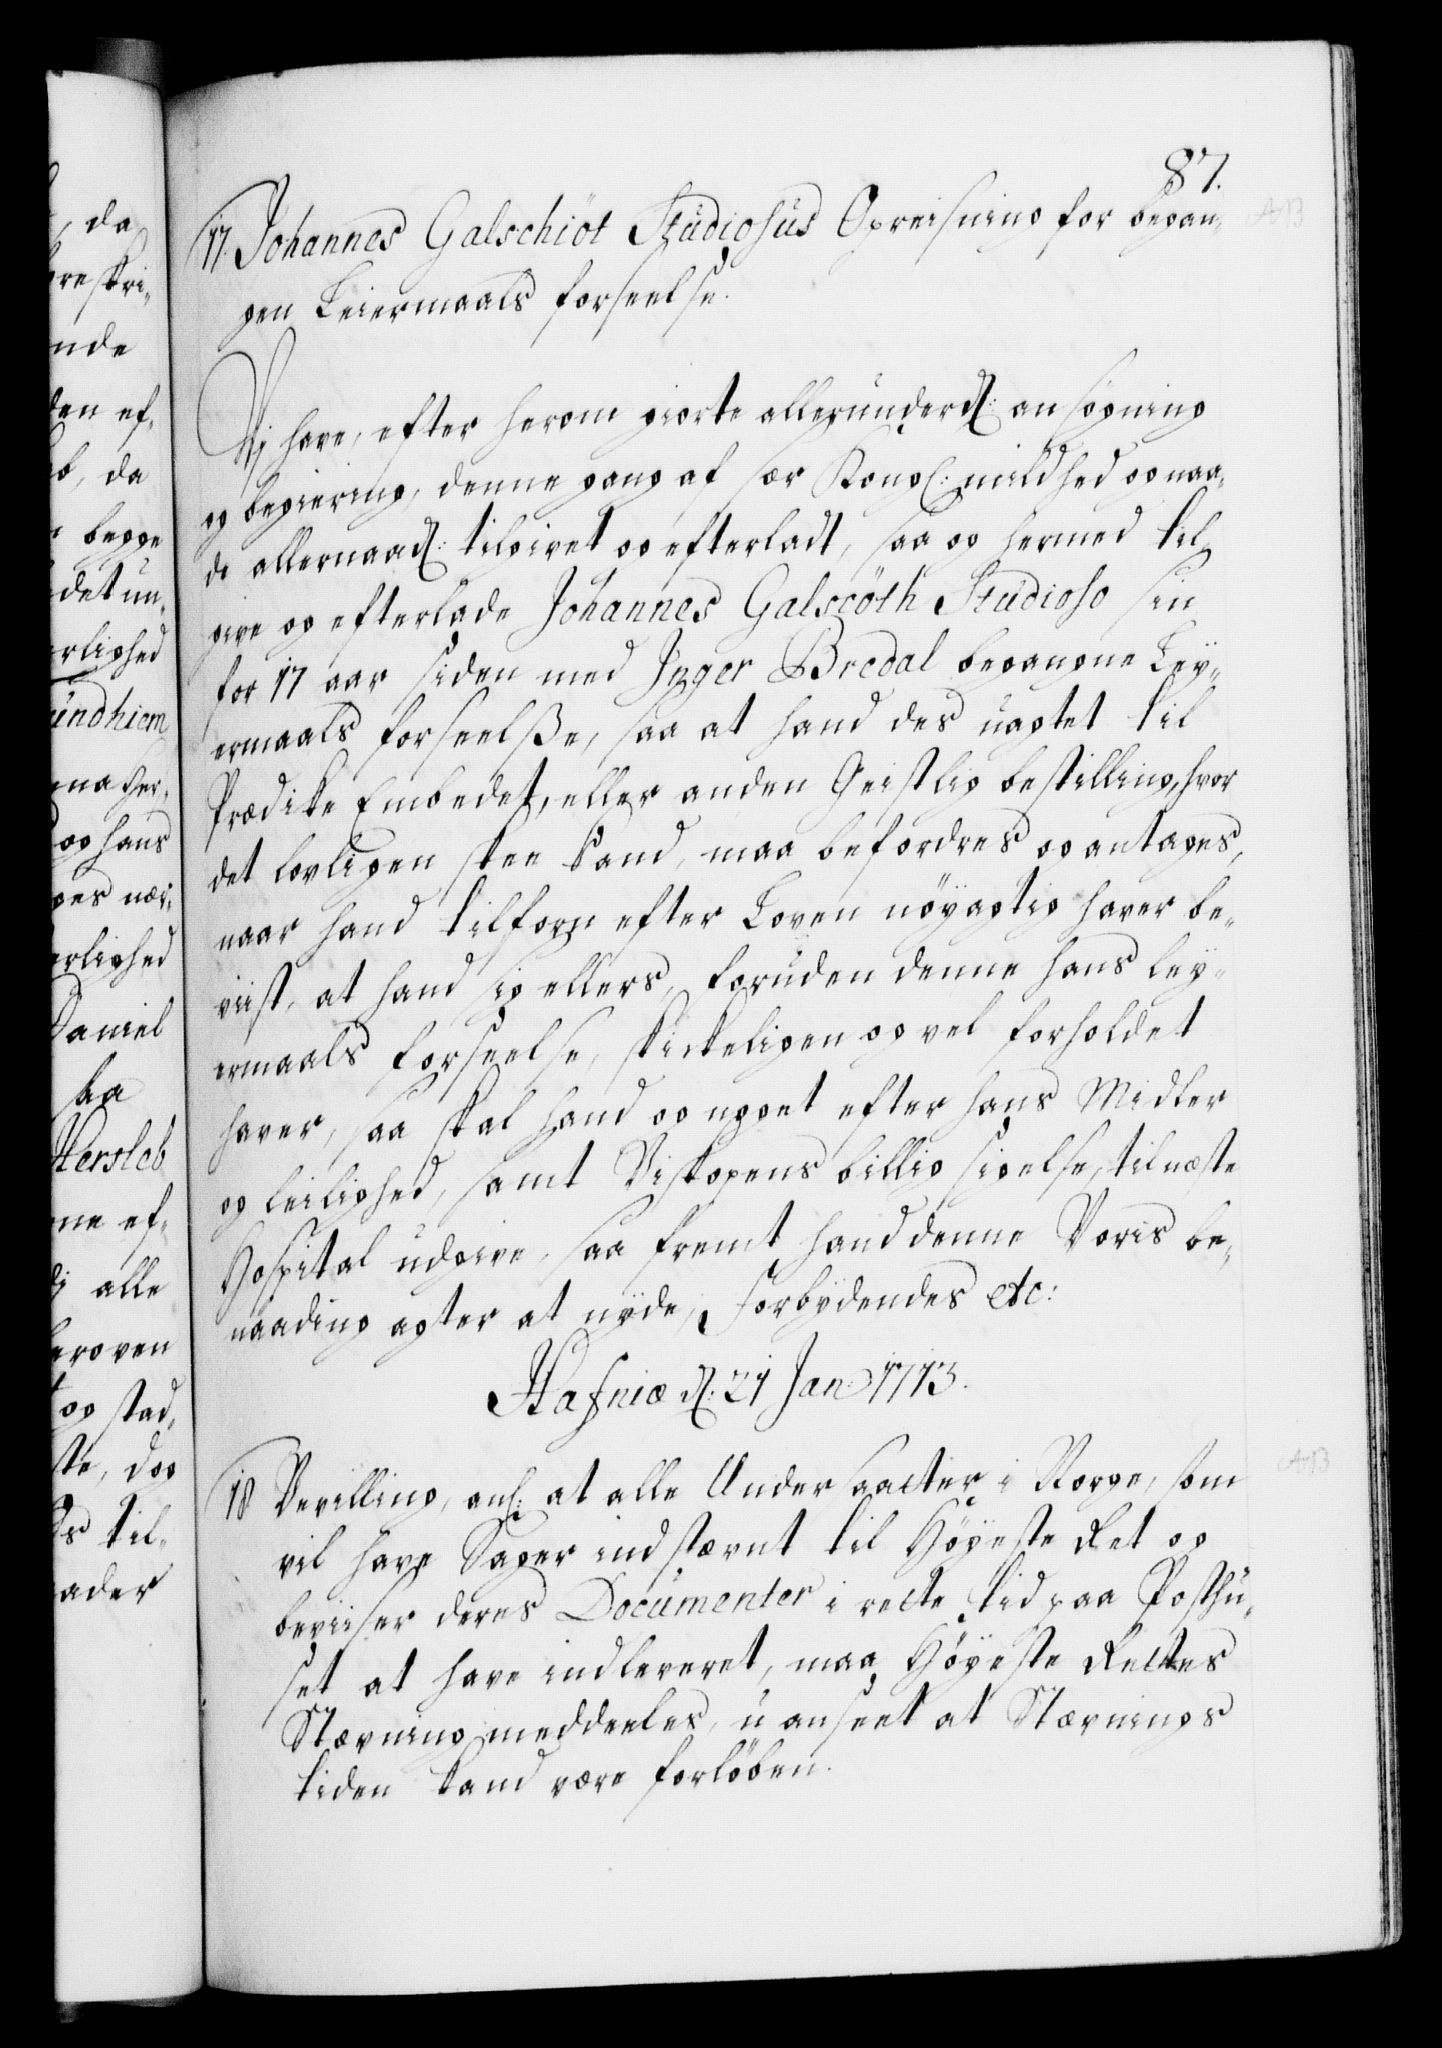 87.
17. Johannes Galschiöt Studiosus Opreisning for began¬
gen Leiermaals forseelse.
Vi have, efter herom giorte allerunderd: ansøgning
og begiering, denne gang af sær Kongl: mildhed og naa¬
de allernaad: tilgivet og efterladt, saa og hermed til¬
give og efterlade Johannes Galscöth Studioso sin
for 17 aar siden med Inger Bredal begangne Ley¬
ermaals forseelsse, saa at hand des uagtet til
Prædike Embedet, eller anden Geistlig bestilling, hvor
det lovligen skee kand, maa befordres og antages,
naar hand tilforn efter Loven nöyagtig haver be¬
viist, at hand sig ellers, foruden denne hans ley¬
ermaals forseelse, skikkeligen og vel forholdet
haver, saa skal hand og noget efter hans Midler
og leilighed, samt Biskopens billig sigelse, til næste
Hospital udgive, saa fremt hand denne Voris be¬
naading agter at nyde, Forbydendes etc:
Hafniæ d: 21 Jan: 1713.
18 Bevilling, anl: at alle Undersaatter i Norge, som
vil have Sager indstævnt til Höyeste Ret og
beviiser deres Documenter i rette tid paa Posthu¬
set at have indleveret, maa Höyeste Rettes
Stævning meddeeles, uanseet at Stævnings
tiden kand være forlöben.
da
preskri¬
nde
den ef¬
da
begge
det un¬
rlighed
undhiem
og hans
ges nær¬
erlighed
Daniel
saa
Hersleb
ne ef¬
alle
eroven
og stad¬
ste, dog
ds til¬
ader